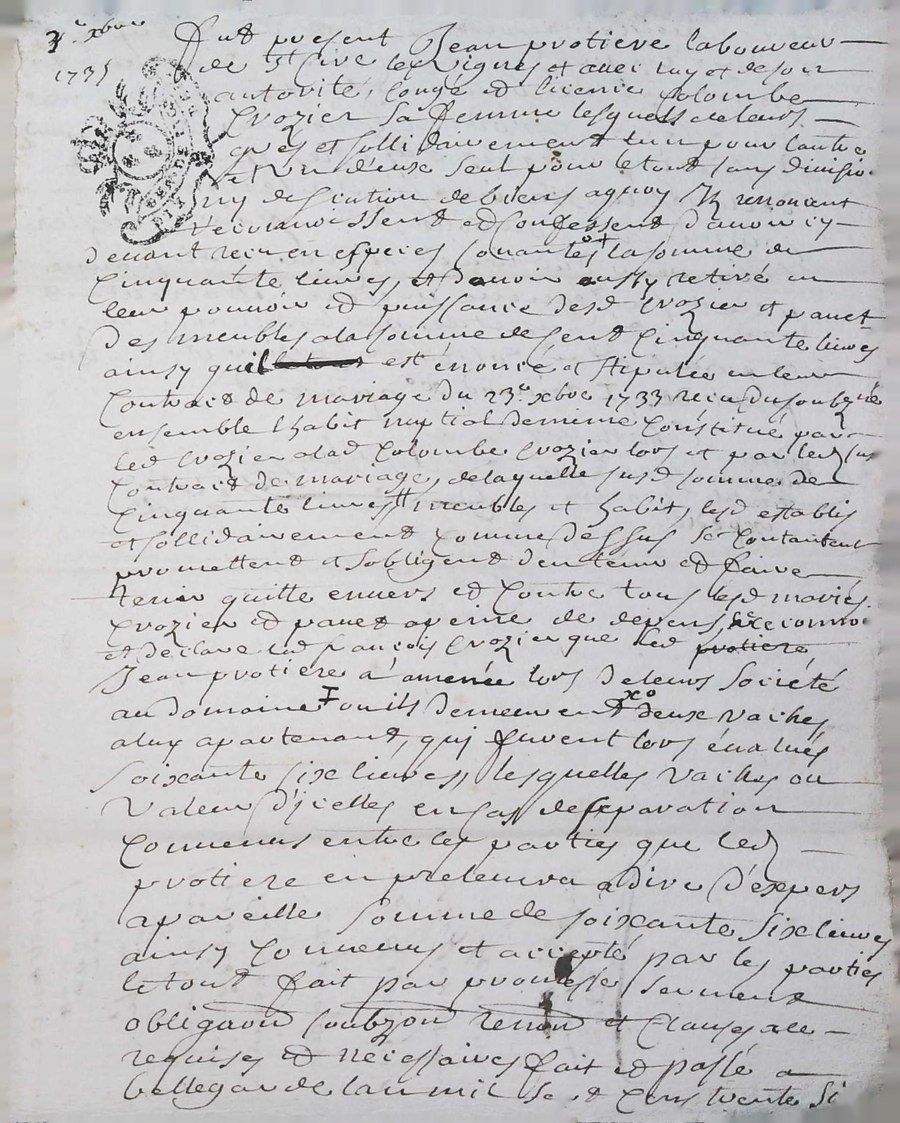 3e xbre
1735
fut present Jean protiere laboureur
de st Cire les Vignes et avec luy et de son
autorité, congé et licence Colombe
Crozier sa femme lesquels de leurs
grés et sollidairement l'un pour l'autre
et l'un d'eux seul pour le tout sans division
ny discution de biens aquoy ils renoncent
reconnoissent et confessent d'avoir cy
devant receu en espèces sonantes la somme de
Cinquante livres, et d'avoir aussy retiré en
leur pouvoir et puissance desd Crozier et panet
des meubles ala somme de Cent Cinquante livres
ainsy quil est énoncé et stipulée en leur
Contract de mariage du 23e xbre 1733 receu du soubzné
ensemble l'habit nuptial dernier Constitué par
led Crozier alad Colombe Crozier lors et par led sus
Contract de mariage, de laquelle susd somme de
Cinquante livres meubles et habit, lesd establis
et sollidairement Comme dessus se Contantent
promettent et s'obligent d'en tenir et faire
tenir quitte envers et Contre tous lesd mariés
Crozier et panet apeine de depens, se reconnoi
et declare led françois Crozier que led protiere
Jean protiere à amenée lors de leurs société
au domaine ou ils demeurent deux vaches
aluy apartenant, qui furent lors évalués
soixante six livres, lesquelles vaches ou
valeur d'icelles en cas de separation
Convenus entre les parties que led
protiere en prelevera adire d'expers
apareille somme de soixante six livres
ainsy Convenus et accepté par les parties
le tout fait par promesse serment
obligaon soubzon renon et Clauses
requises et necessaires fait et passé a
bellegarde l'an mil se et Cens trente Si